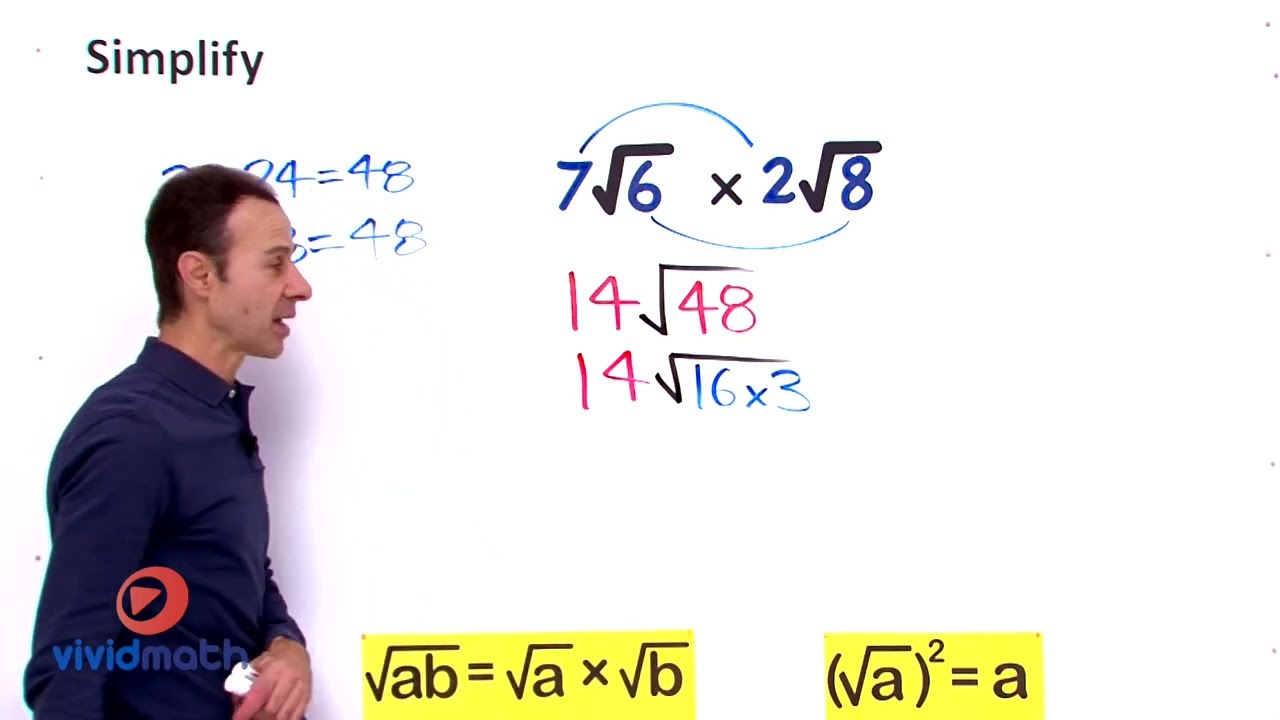 Simplify
24=48
=48
7√6 × 2√8
14√48
14√16×3
vividmath
√ab = √a × √b
(√a)² = a